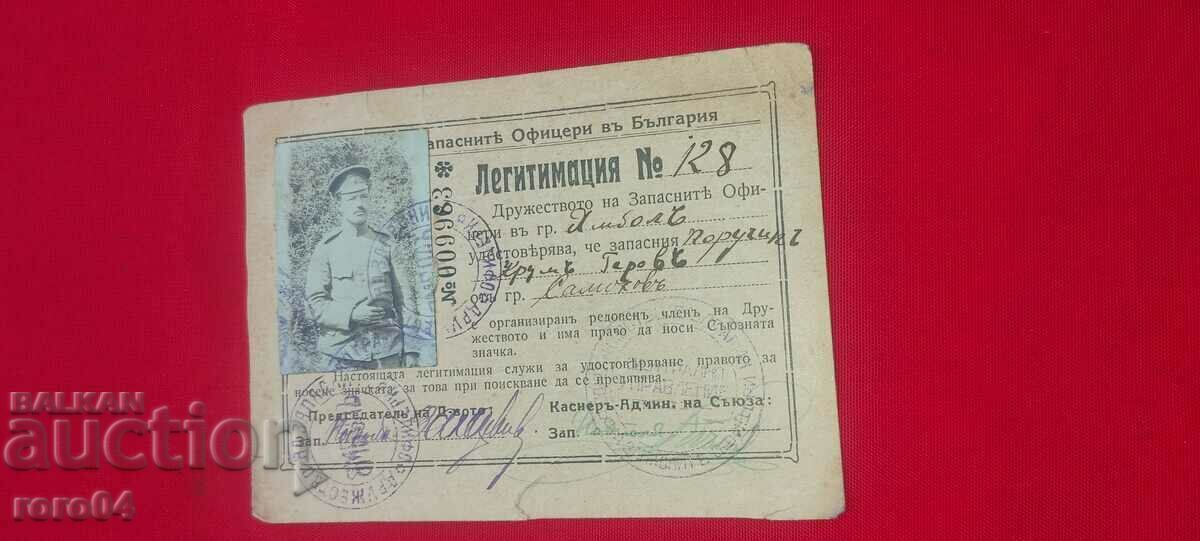 апаснитѣ Офицери въ България
Легитимация № 128
№ 009963 *
Дружеството на Запаснитѣ Офи-
цери въ гр. Ямболъ
удостовѣрява, че запасния Поручикъ
Крумъ Геровъ
отъ гр. Самоковъ
е организиран редовен членъ на Дру-
жеството и има право да носи Съюзната
значка.
Настоящата легитимация служи за удостовѣряване правото за
носене значката, за това при поискване да се предявява.
Председатель на Д-вото:
Касиеръ-Админ. на Съюза:
Зап.
Зап.
BALKAN
auction
roro04